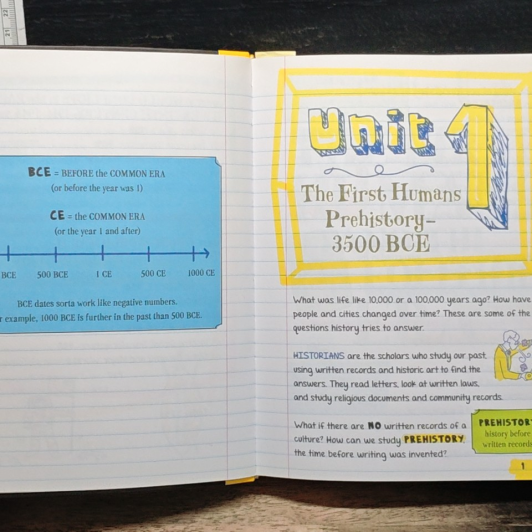 BCE = BEFORE the COMMON ERA
(or before the year was 1)
CE = the COMMON ERA
(or the year 1 and after)
BCE 500 BCE 1 CE 500 CE 1000 CE
BCE dates sorta work like negative numbers.
example, 1000 BCE is further in the past than 500 BCE.
Unit 1
The First Humans
Prehistory–
3500 BCE
What was life like 10,000 or a 100,000 years ago? How have
people and cities changed over time? These are some of the
questions history tries to answer.
HISTORIANS are the scholars who study our past
using written records and historic art to find the
answers. They read letters, look at written laws,
and study religious documents and community records.
What if there are NO written records of a
culture? How can we study PREHISTORY,
the time before writing was invented?
PREHISTORY
history before
written records
1